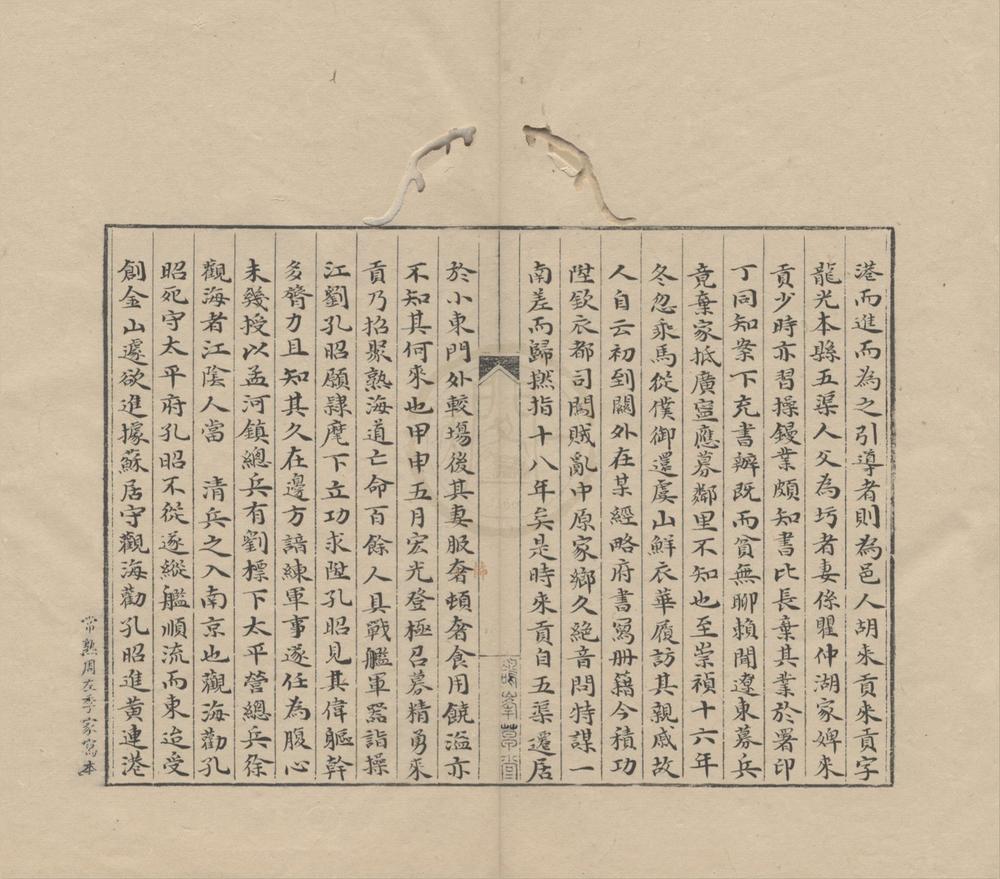 港而進而為之引導者則為邑人胡来貢来貢字
龍光本縣五渠人父為圬者妻係瞿仲湖家婢来
貢少時亦習操鏝業頗知書比長棄其業於署印
丁同知案下充書辦既而貧無聊賴聞遼東募兵
竟棄家抵廣寧應募鄰里不知也至崇禎十六年
冬忽乘馬從僕御還虞山鮮衣華履訪其親戚故
人自云初到關外在某經略府書寫册籍今積功
陞欽衣都司闖賊亂中原家鄉久絶音問特謀一
南差而歸撚指十八年矣是時来貢自五渠遷居
於小東門外較塲後其妻服奢頓奢食用饒溢亦
不知其何來也甲申五月宏光登極召募精勇来
貢乃招聚熟海道亡命百餘人具戰艦軍器詣操
江劉孔昭願隷麾下立功求陞孔昭見其偉軀幹
多膂力且知其久在邊方諳練軍事遂任為腹心
未幾授以孟河鎮總兵有劉標下太平營總兵徐
觀海者江陰人當 清兵之入南京也觀海勸孔
昭死守太平府孔昭不從遂縱艦順流而東迨受
創金山遽欲進據蘇居守觀海勸孔昭進黄連港
常熟周左季家寫本